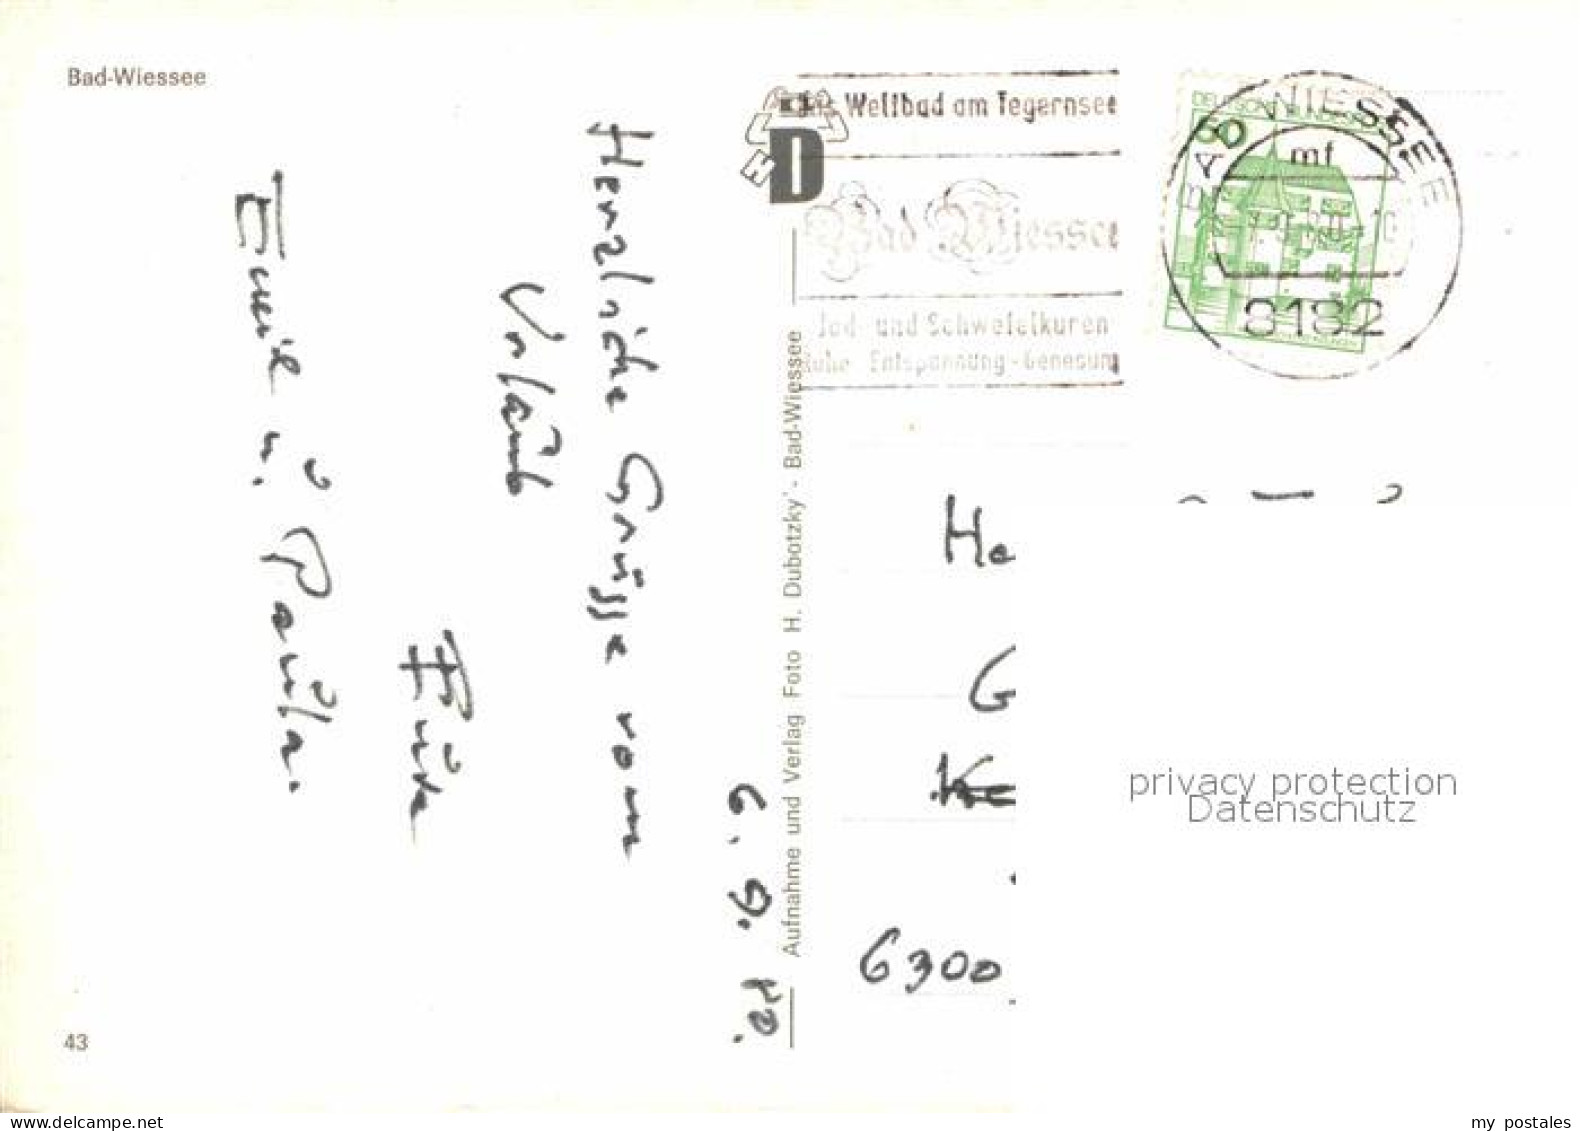 Bad-Wiessee
6. 9. 80.
Herzliche Grüsse vom
Urlaub
Emil u. Paula.
43
Aufnahme und Verlag Foto H. Dubotzky' - Bad-Wiessee
HD
Das Weltbad am Tegernsee
Bad Wiessee
Jod- und Schwefelkuren
Ruhe - Entspannung - Genesung
BAD WIESSEE
mf
8182
50
He
G
6300
privacy protection
Datenschutz
www.delcampe.net
my postales